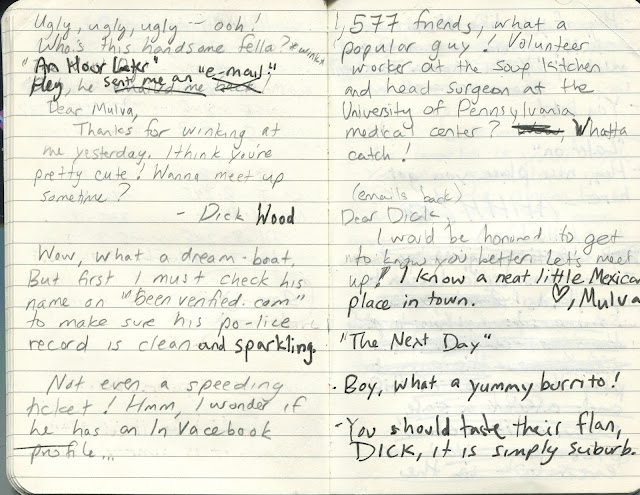 Ugly, ugly, ugly — ooh!
Who's this handsome fella? *wink*
"An Hour Later"
Hey, he sent me an "e-mail."
Dear Mulva,
Thanks for winking at
me yesterday. I think you're
pretty cute! Wanna meet up
sometime?
- Dick Wood
Wow, what a dream-boat.
But first I must check his
name on "beenverified.com"
to make sure his po-lice
record is clean and sparkling.
Not even a speeding
ticket! Hmm, I wonder if
he has an In Vacebook
profile...
1,577 friends, what a
popular guy! Volunteer
worker at the soup kitchen
and head surgeon at the
University of Pennsylvania
medical center? Whatta
catch!
(emails back)
Dear Dick,
I would be honored to get
to know you better. Let's meet
up! I know a neat little Mexican
place in town. ♡, Mulva
"The Next Day"
- Boy, what a yummy burrito!
- You should taste their flan,
DICK, it is simply suburb.